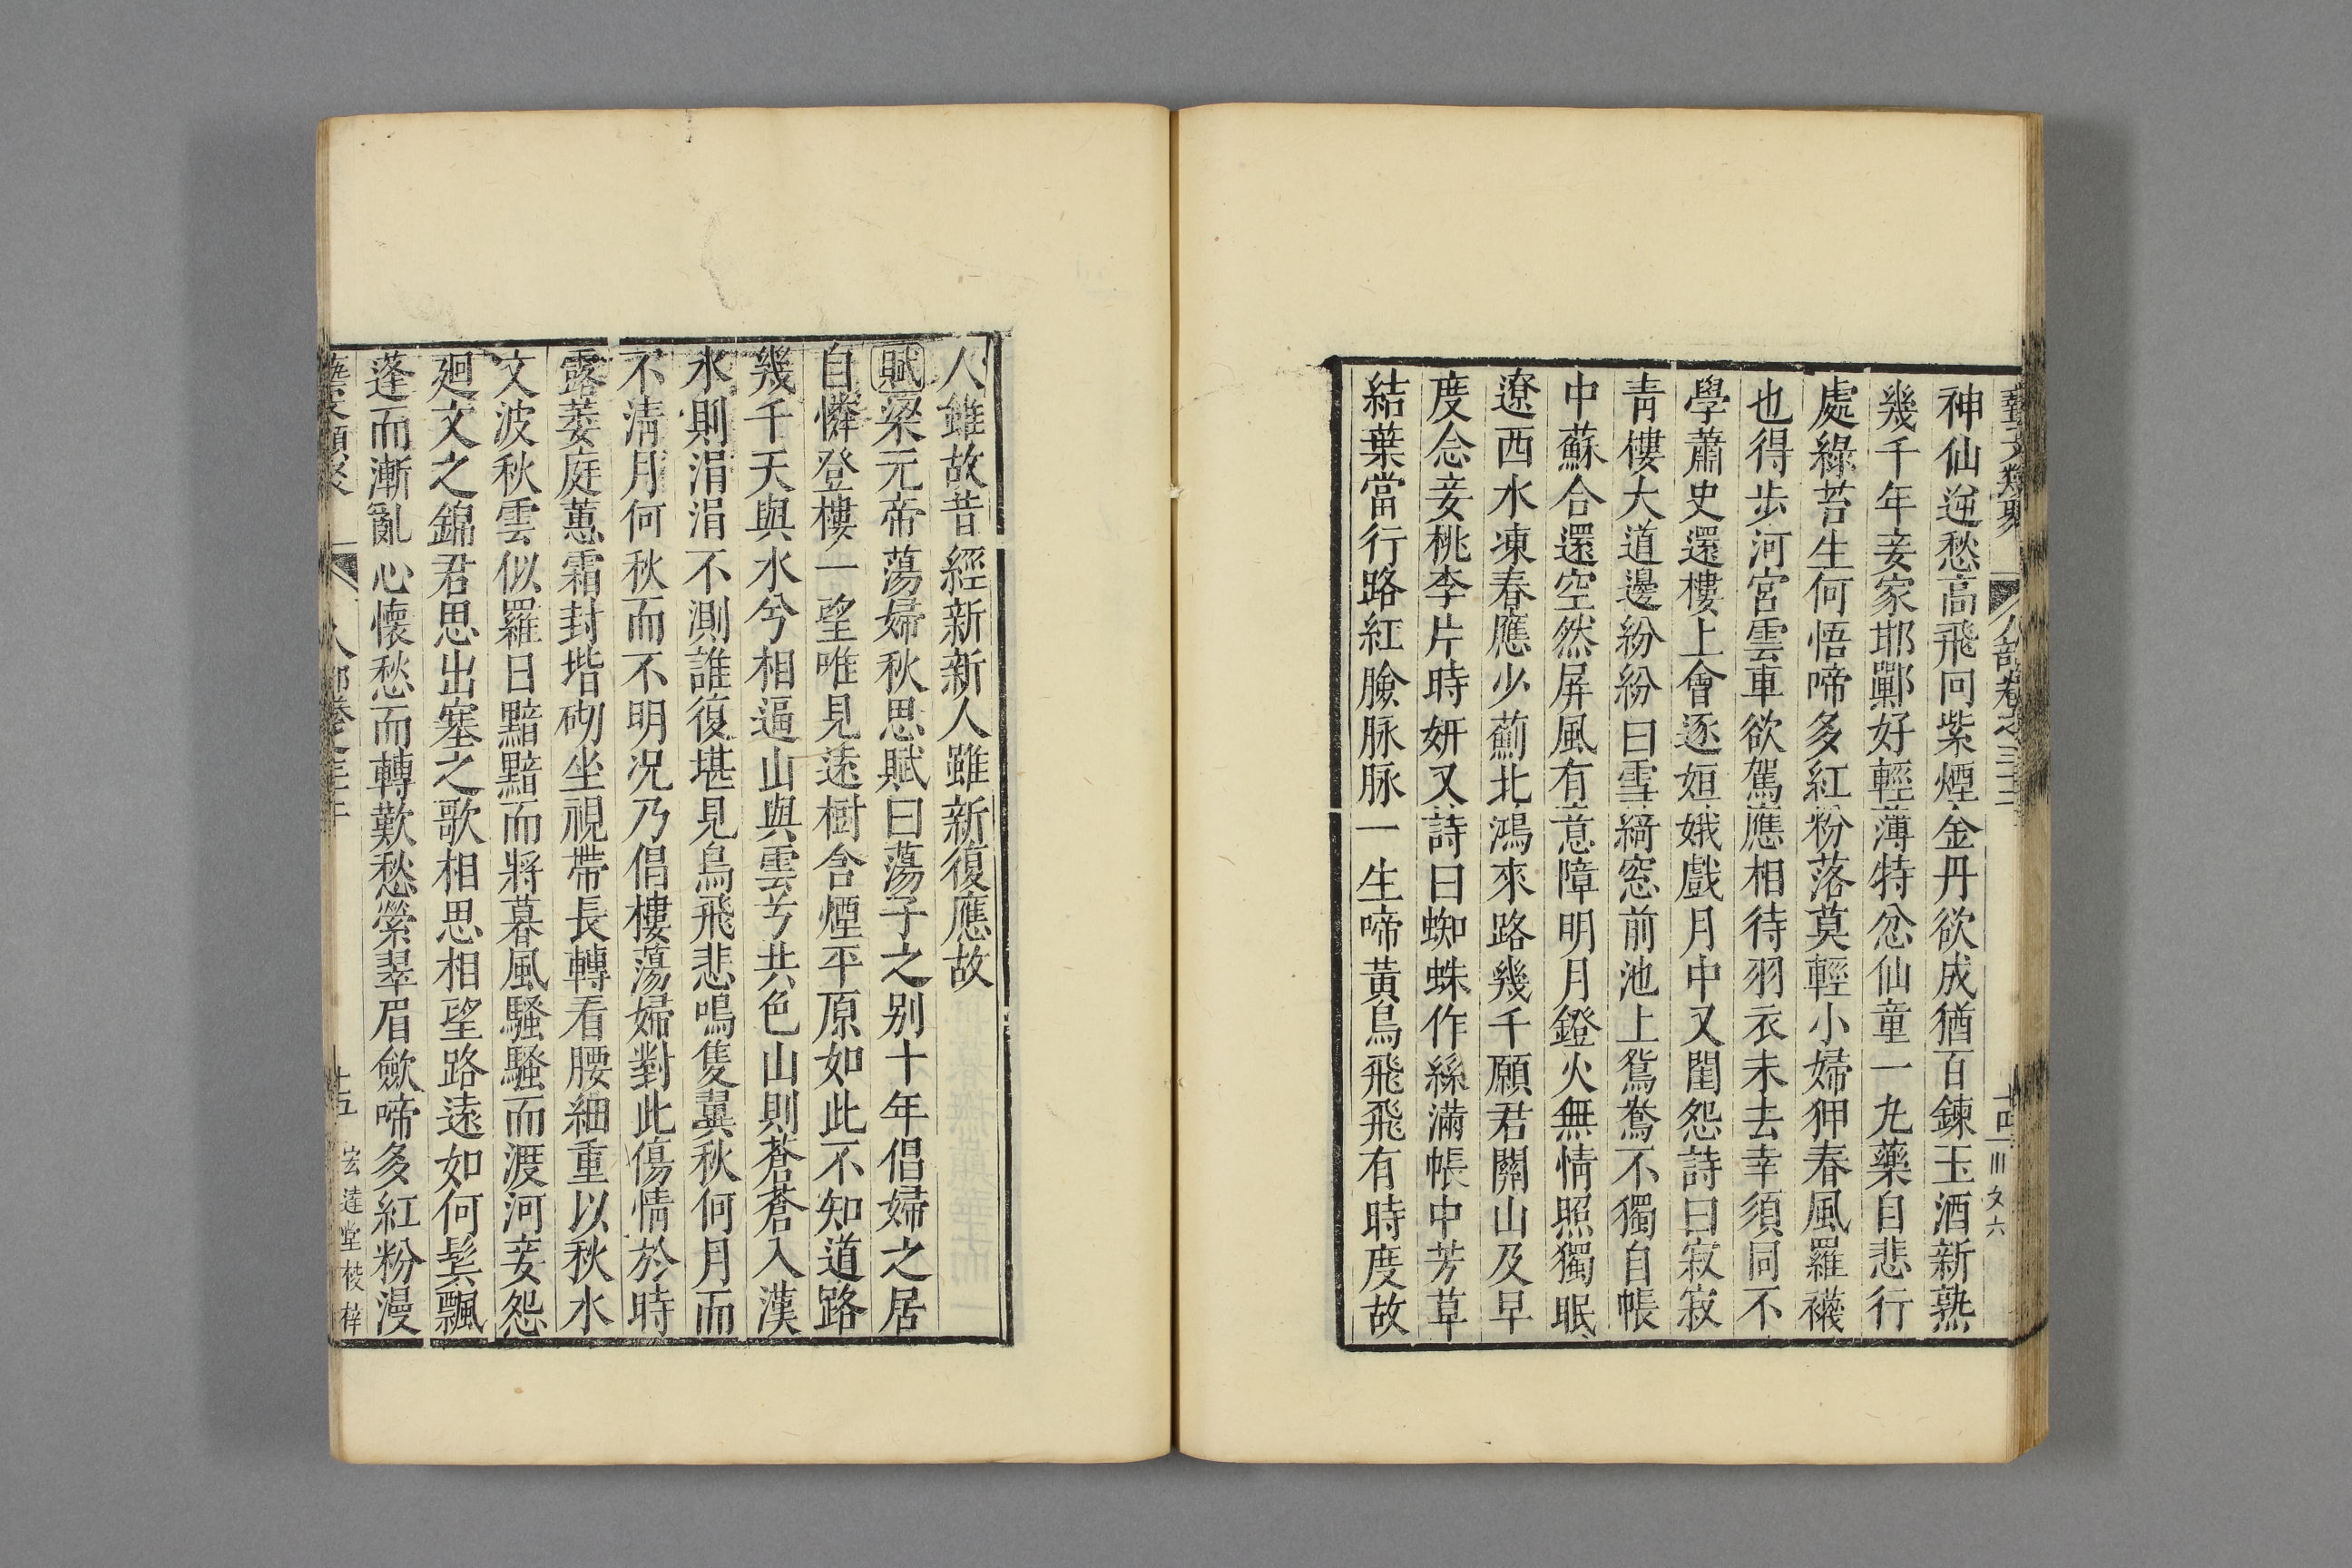 藝文類聚 人部卷之三十二 十四 三 文六
神仙逆愁高飛向紫煙金丹欲成猶百鍊玉酒新熟
幾千年妾家邯鄲好輕薄特忿仙童一九藥自悲行
處綠苔生何悟啼多紅粉落莫輕小婦狎春風羅襪
也得步河宮雲車欲駕應相待羽衣未去幸須同不
學蕭史還樓上會逐姮娥戲月中又閨怨詩曰寂寂
青樓大道邊紛紛白雪綺窓前池上鴛鴦不獨自帳
中蘇合還空然屏風有意障明月鐙火無情照獨眠
遼西水凍春應少薊北鴻來路幾千願君關山及早
度念妾桃李片時妍又詩曰蜘蛛作絲滿帳中芳草
結葉當行路紅臉脉脉一生啼黃鳥飛飛有時度故
人雖故昔經新新人雖新復應故
賦梁元帝蕩婦秋思賦曰蕩子之别十年倡婦之居
自憐登樓一望唯見遠樹含煙平原如此不知道路
幾千天與水兮相逼山與雲兮共色山則蒼蒼入漢
水則涓涓不測誰復堪見鳥飛悲鳴隻翼秋何月而
不淸月何秋而不明況乃倡樓蕩婦對此傷情於時
露萎庭蕙霜封堦砌坐視帶長轉看腰細重以秋水
文波秋雲似羅日黯黯而將暮風騷騷而渡河妾怨
廻文之錦君思出塞之歌相思相望路遠如何鬂飄
蓬而漸亂心懷愁而轉歎愁縈翠眉歛啼多紅粉漫
藝文類聚 人部卷之三十二 十五 宏達堂校梓